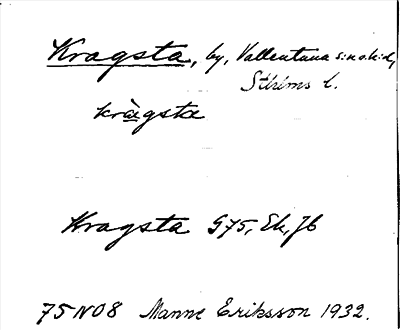 Kragsta, by, Vallentuna s:n o. h:d,
Sthlms l.
kràgsta
Kragsta G75, Ek, Jb
75NO8 Manne Eriksson 1932.